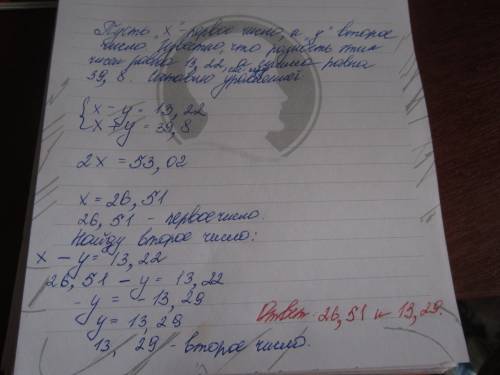 Пусть "x" - первое число, а "y" второе
число. Известно, что разность этих
чисел равна 13,22, а сумма равна
39,8. Составлю уравнений
x - y = 13,22
x + y = 39,8
2x = 53,02
x = 26,51
26,51 - первое число.
Найду второе число:
x - y = 13,22
26,51 - y = 13,22
-y = -13,29
y = 13,29
13,29 - второе число.
Ответ: 26,51 и 13,29.